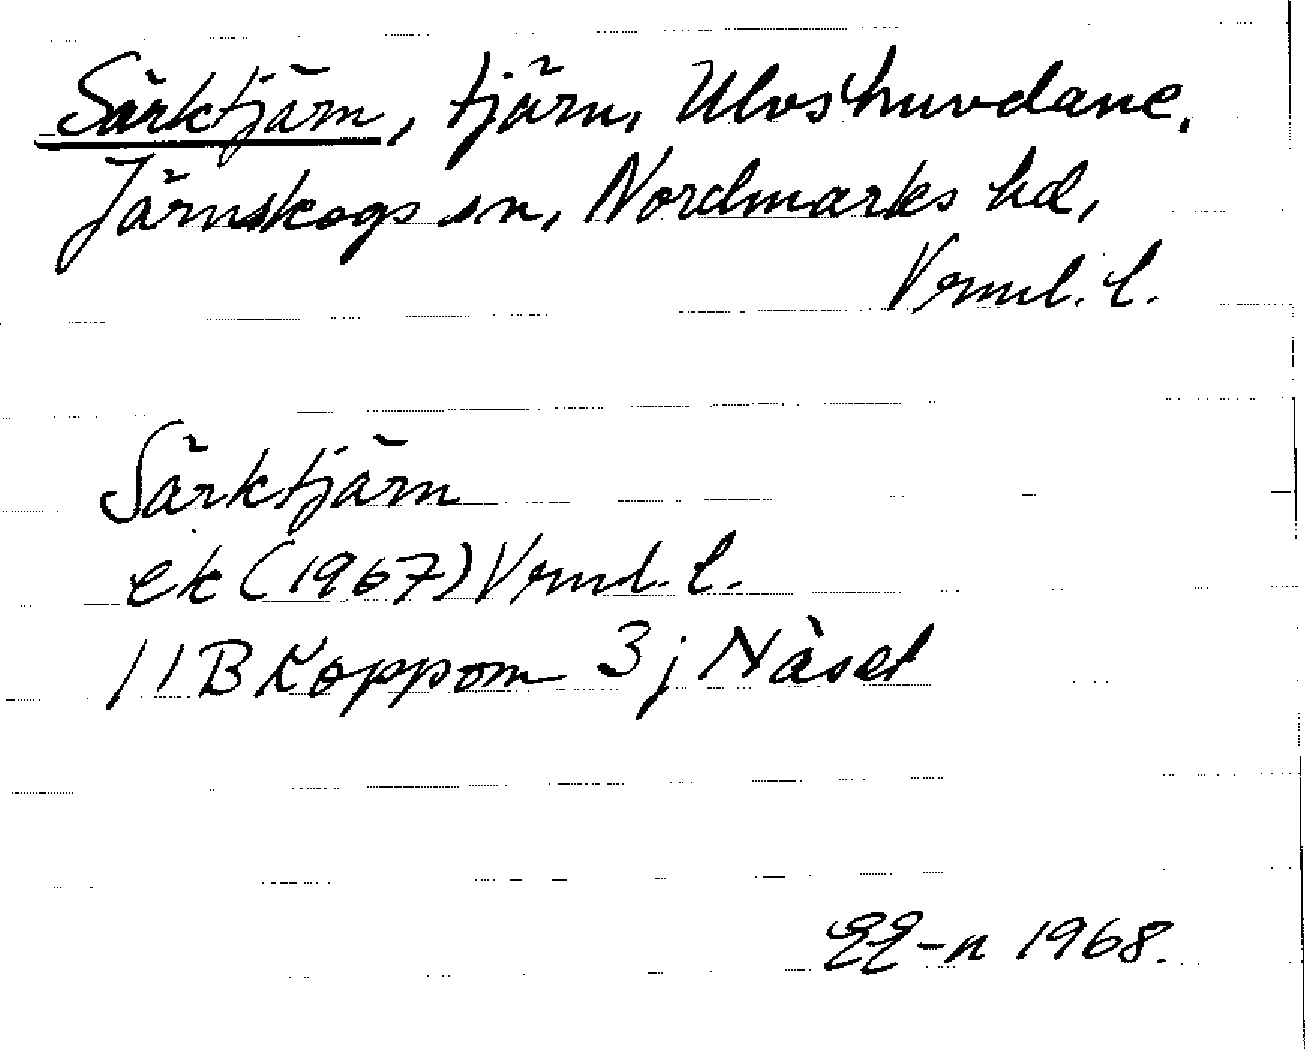 Särktjärn, tjärn, Ulvshuvdane,
Järnskogs sn, Nordmarks hd,
Vrml. l.
Särktjärn
ek (1967) Vrml. l.
11B Koppom 3j Näset
1968.